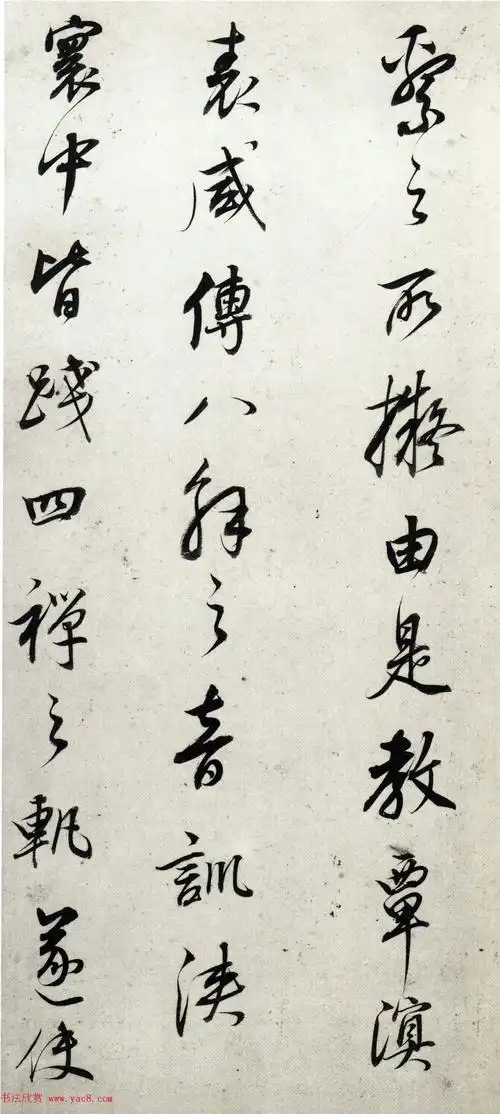 繫之所擬由是教覃溟
表咸傳八解之音訓浹
寰中皆踐四禪之軌遂使
书法欣赏 www.yac8.com